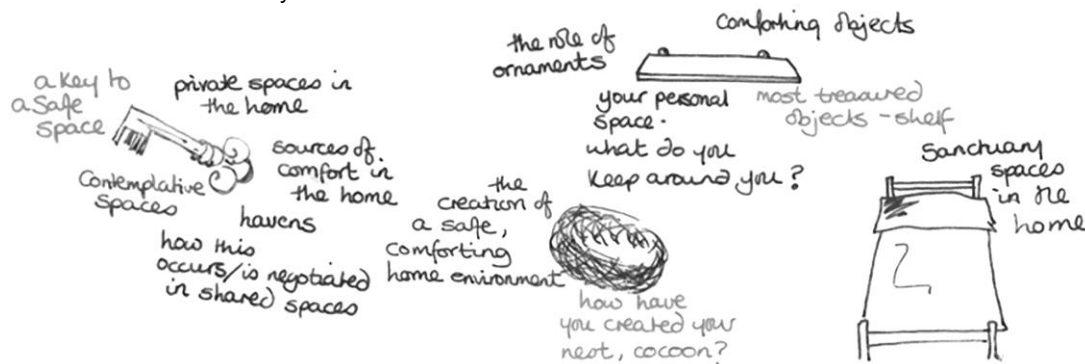 a key to
a safe
space
private spaces in
the home
sources of
comfort in
the home
Contemplative
spaces
havens
how this
occurs/is negotiated
in shared spaces
the
creation of
a safe,
comforting
home environment
how have
you created your
nest, cocoon?
the role of
ornaments
comforting objects
your personal
space.
what do you
keep around you?
most treasured
objects - shelf
Sanctuary
spaces
in the
home